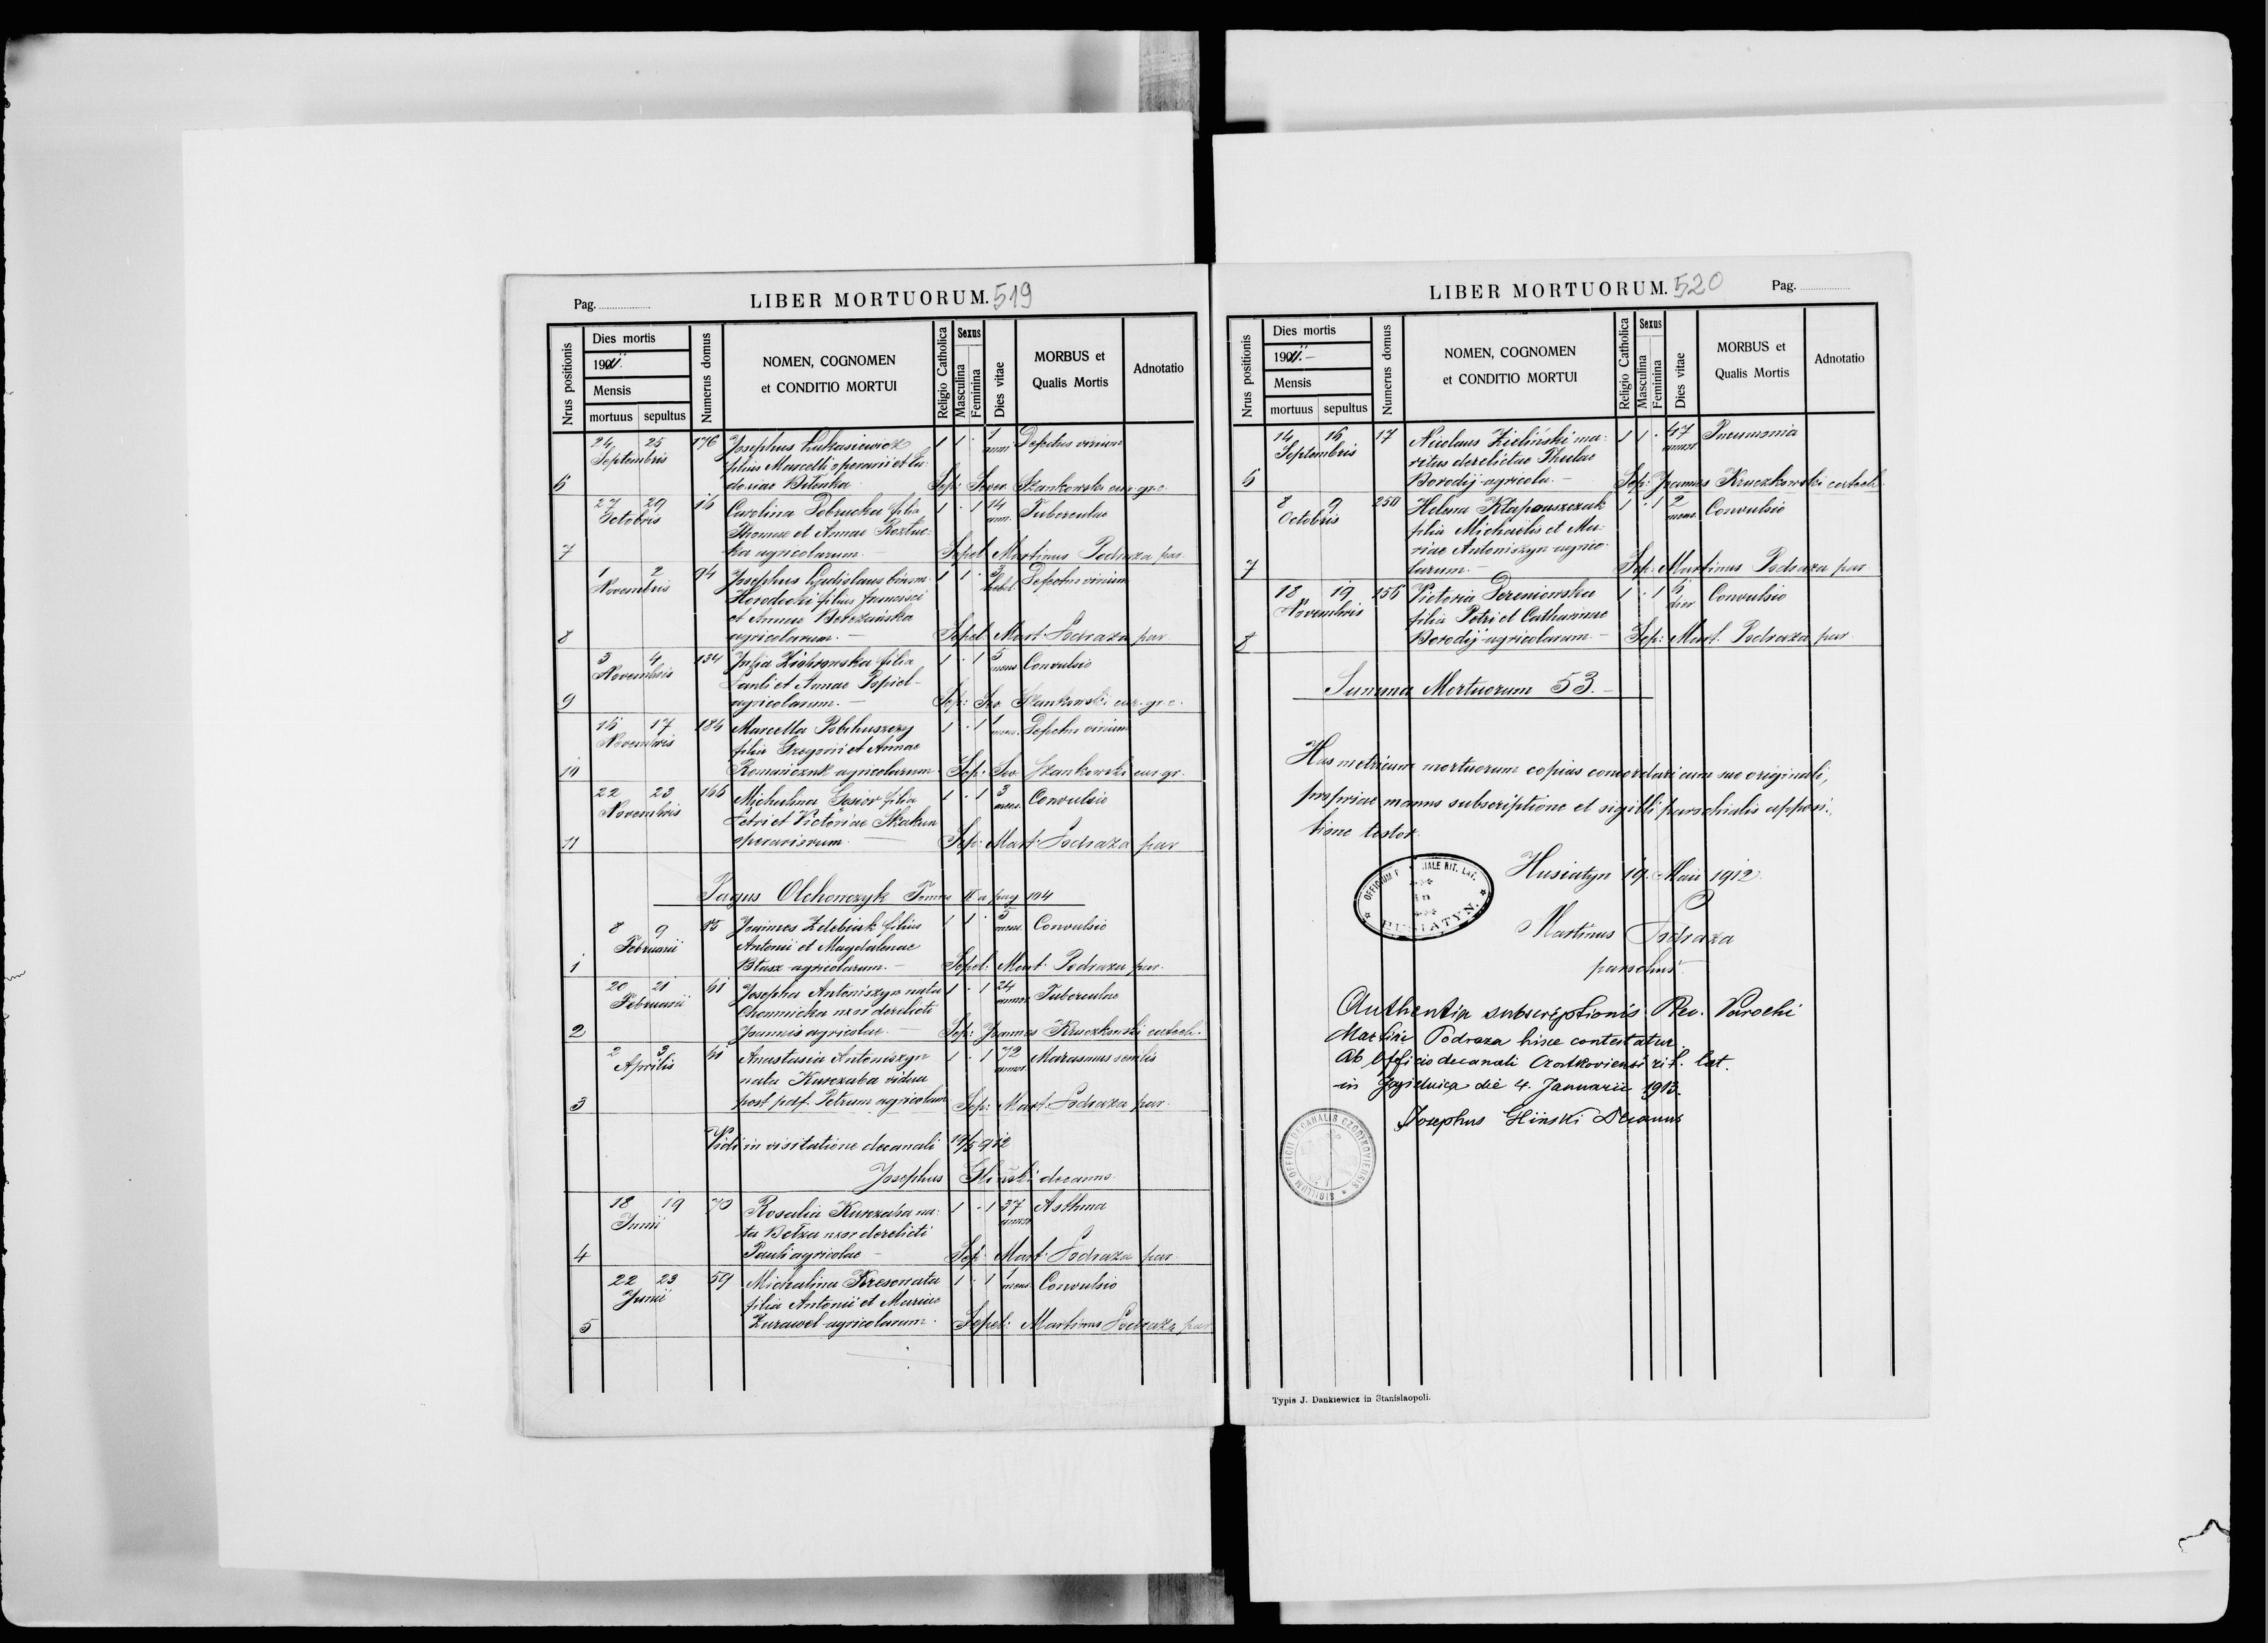 Pag. LIBER MORTUORUM. 519
Nrus positionis
Dies mortis
1911.
Mensis
mortuus sepultus
Numerus domus
NOMEN, COGNOMEN
et CONDITIO MORTUI
Religio Catholica
Sexus
Masculina
Feminina
Dies vitae
MORBUS et
Qualis Mortis
Adnotatio
24 25 176 Josephus Łukasiewicz 1 1 · 1 Defectus virium
Septembris filius Marcelli operarii et anni
6 Sep: Sever. Szankowski cur. gr. c.
27 29 Carolina Dobrucka filia 1 · 1 14 Tuberculae
Octobris Thomae et Annae ann.
7 agricolarum Sepel. Martinus Podraza par.
1 2 94 Josephus Ladislaus binom. 1 1 · 3 Defectus virium
Novembris Horodecki filius Francisci
et Annae
8 agricolarum. — Sepel. Mart. Podraza par.
3 4 134 filia 1 · 1 5 Convulsio
Novembris Pauli et Annae Popiel mens
9 agricolarum. — Sep: Sev. Szankowski cur. gr. c.
17 184 Marcella 1 · 1 1 Defectus virium
Novembris filia Gregorii et Annae
10 Romańczuk agricolarum Sep: Sev. Szankowski cur. gr.
22 23 166 Michalina Gąsior filia 1 · 1 3 Convulsio
Novembris Petri et Victoriae Skakun mens.
11 operariorum. — Sep: Mart. Podraza par
Pagus Olchowczyk Tomus II a pag 104
8 9 Joannes Zdebiak filius 1 1 · 5 Convulsio
Februarii Antonii et Magdalenae mens.
1 agricolarum. — Sepel: Mart. Podraza par.
20 21 61 Josepha Antoniszyn nata 1 · 1 24 Tuberculae
Februarii uxor derelicti annor.
2 Joannis agricolae. — Sep: Joannes Kruczkowski catech.
2 3 61 Anastasia Antoniszyn 1 · 1 72 Marasmus senilis
Aprilis nata Kurczaba vidua annor.
3 post def. Petrum agricolam Sep: Mart. Podraza par.
Vidi in visitatione decanali 19/5 912
Josephus Gliński decanus
18 19 70 Rosalia Kurczaba na- 1 · 1 37 Asthma
Junii ta uxor derelicti annor
4 Pauli agricolae — Sep: Mart. Podraza par.
22 23 59 Michalina 1 · 1 1 Convulsio
Junii filia Antonii et Mariae mens.
5 Żurawel agricolarum. Sepel: Martinus Podraza par
LIBER MORTUORUM. 520 Pag.
Nrus positionis
Dies mortis
1911. —
Mensis
mortuus sepultus
Numerus domus
NOMEN, COGNOMEN
et CONDITIO MORTUI
Religio Catholica
Sexus
Masculina
Feminina
Dies vitae
MORBUS et
Qualis Mortis
Adnotatio
14 16 17 Nicolaus Zieliński ma- 1 1 · 47 Pneumonia
Septembris ritus derelictae Theclae annor.
6 Borodij agricola. — Sep: Joannes Kruczkowski catech.
8 9 250 Helena Kłapouszczak 1 · 1 2 Convulsio
Octobris filia Michaelis et Ma- mens.
riae Antoniszyn agrico-
7 larum. — Sep: Martinus Podraza par
18 19 156 Victoria Dereniowska 1 · 1 6 Convulsio
Novembris filia Petri et Catharinae dier
8 Borodij agricolarum — Sep: Mart. Podraza par.
Summa Mortuorum 53. —
Has metricum mortuorum copias concordari cum suo originali,
propriae manus subscriptione et sigilli parochialis apposi-
tione testor.
Husiatyn 19. Maii 1912.
HUSIATYN.
Martinus Podraza
parochus
Authentia subscriptionis Rev. Parochi
Martini Podraza hisce contestatur.
Ab Officio decanali Czortkoviensi rit. lat.
in Jagielnica die 4. Januarii 1913.
Josephus Gliński Decanus
SIGILLUM OFFICII DECANALIS CZORTKOVIENSIS
Typis J. Dankiewicz in Stanislaopoli.